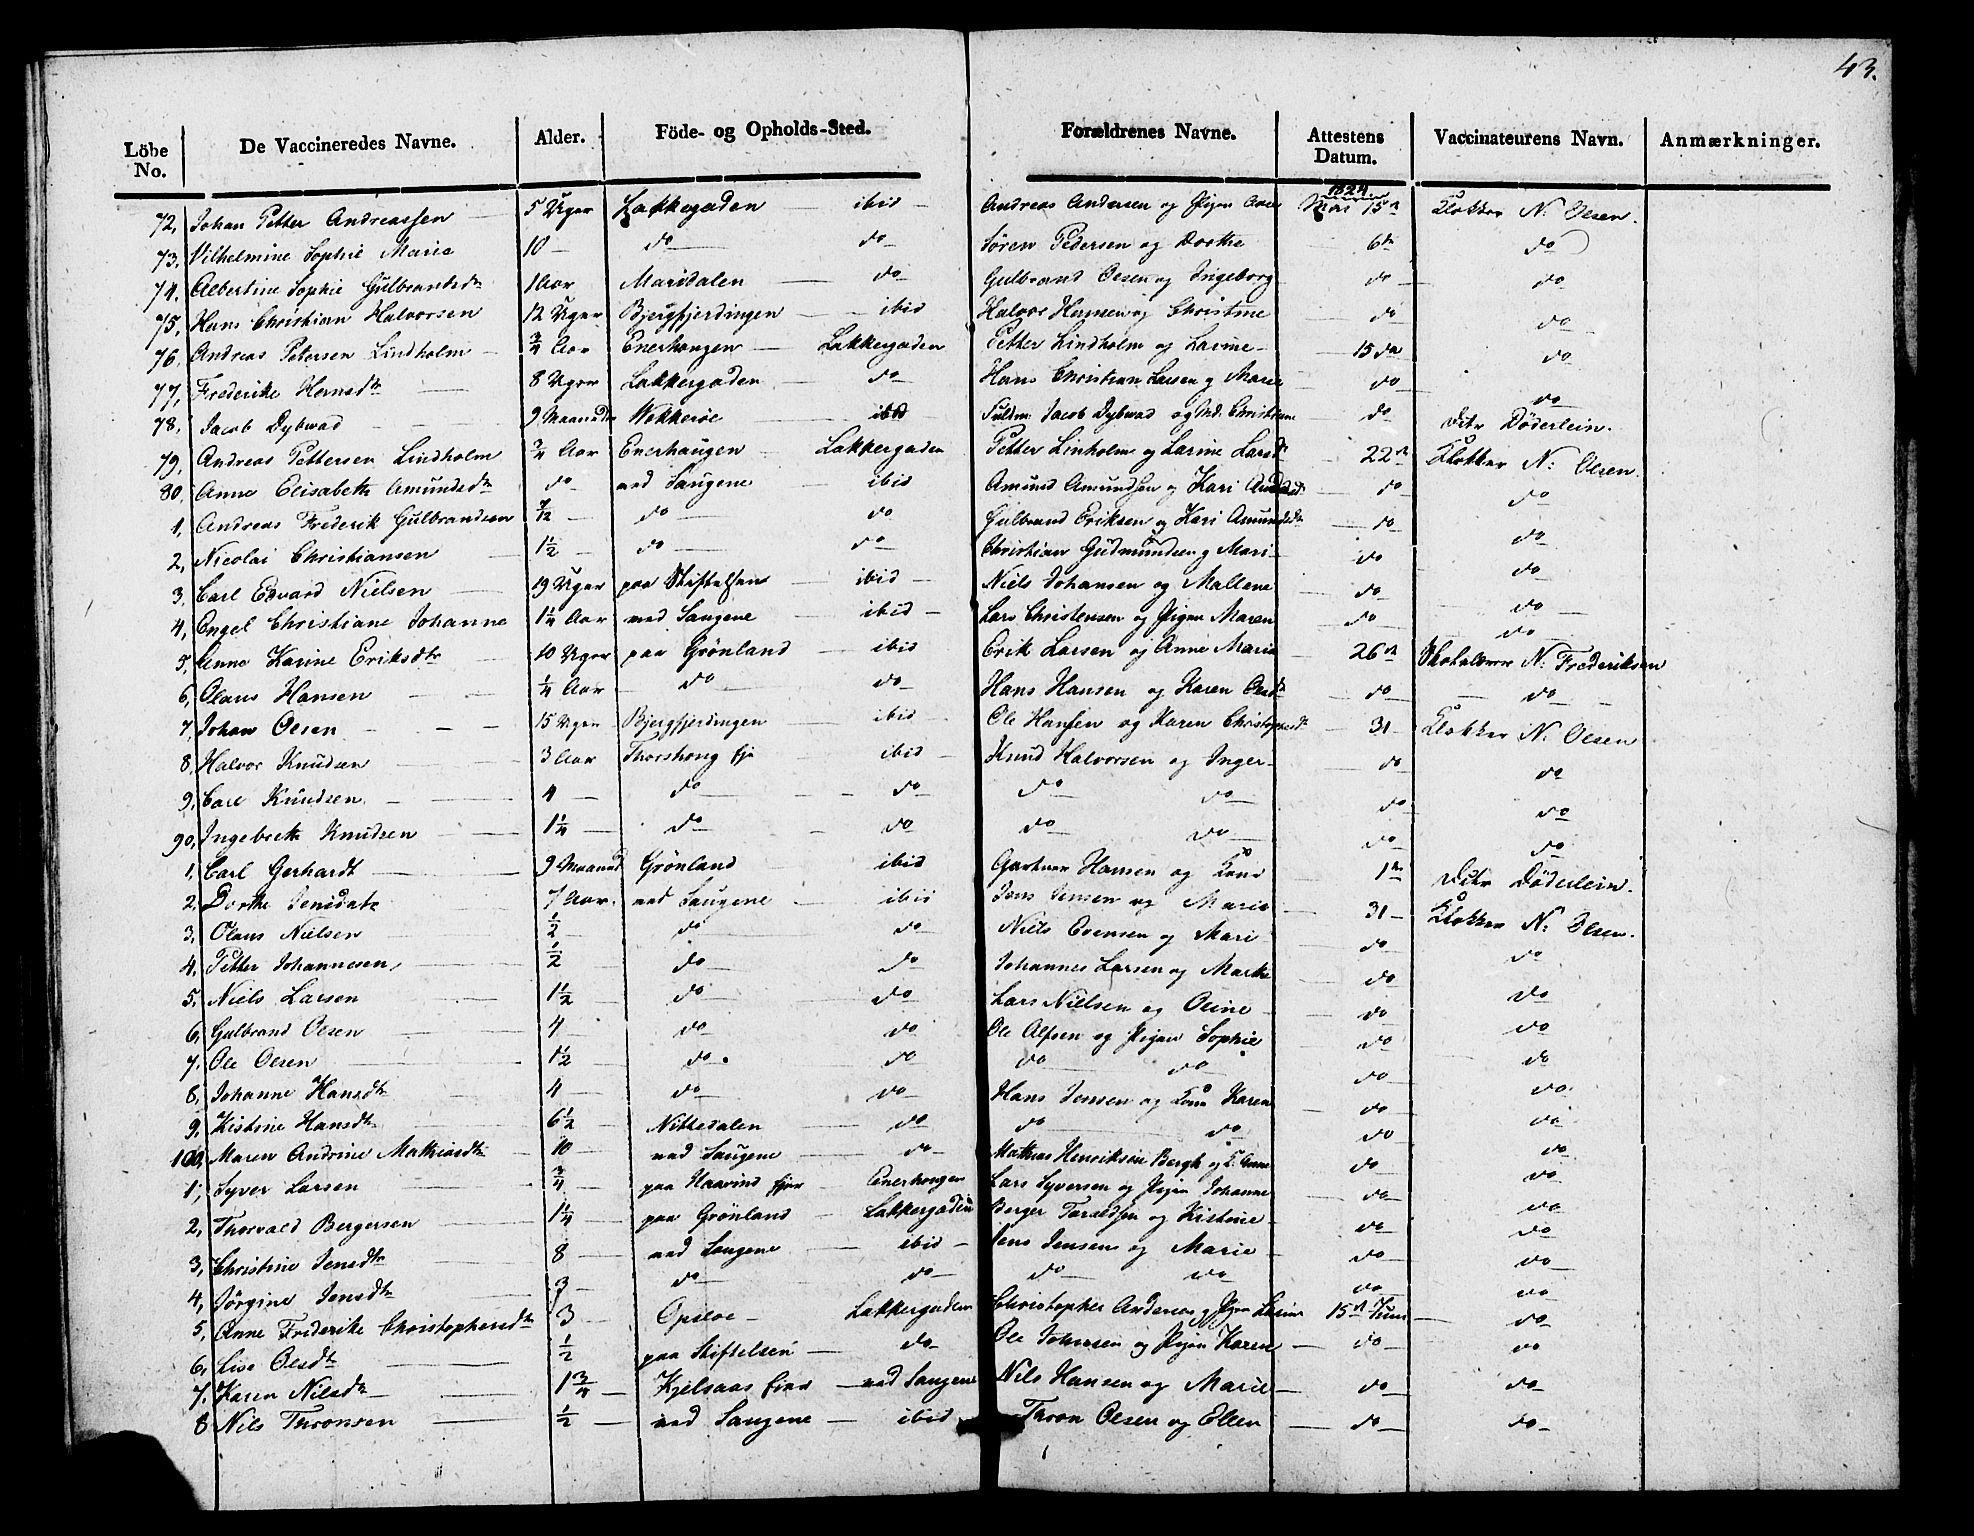 43.
Löbe No. De Vaccineredes Navne. Alder. Föde- og Opholds-Sted. Forældrenes Navne. Attestens Datum. Vaccinateurens Navn. Anmærkninger.
1824
72, Johan Petter Andreassen 5 Uger Lakkegaden ibid Andreas Andersen og Pigen Mai 15de Klokker N: Olsen.
73, Vilhelmine Sophie Marie 10 — do do Søren Pedersen og Dorthe 6de do
74, Albertine Sophie Gulbrandsdtr 1 Aar Maridalen do Gulbrand Olsen og Ingeborg do do
75, Hans Christian Halvorsen 12 Uger Bjergfjerdingen ibid Halvor Hansen og Christine do do
76, Andreas Petersen Lindholm 3/4 Aar Enerhougen Lakkegaden Petter Lindholm og Larine 15de do
77, Frederike Hansdtr 8 Uger Lakkegaden do Hans Christian Larsen og Marie do do
78, Jacob Dybwad 9 Maaneder Wækkerøe ibid Fuldm. Jacob Dybwad og Md. Christiane do Dctr Döderlein.
79, Andreas Pettersen Lindholm 3/4 Aar Enerhaugen Lakkegaden Petter Linholm og Larine Larsdtr 22de Klokker N: Olsen
80, Anne Elisabeth Amundsdtr do ved Saugene ibid Amund Amundsen og Kari do do
1, Andreas Frederik Gulbrandsen 7/12 — do do Gulbrand Eriksen og Kari Amundsdtr do do
2, Nicolai Christiansen 1 1/2 — do do Christian Gudmundsen og Mari do do
3, Carl Edvard Nielsen 19 Uger paa Stiftelsen ibid Niels Johansen og Mallene do do
4, Engel Christiane Johanne 1 1/4 Aar ved Saugene ibid Lars Christensen og Pigen Maren do do
5, Anne Karine Eriksdtr 10 Uger paa Grönland ibid Erik Larsen og Anne Marie 26de N: Frederiksen
6, Olaus Hansen 1/4 Aar do do Hans Hansen og Karen Olsdtr do do
7, Johan Olsen 15 Uger Bjergfjerdingen ibid Ole Hansen og Karen Christophersdtr 31 Klokker N. Olsen
8, Halvor Knudsen 3 Aar Thorshoug ibid Knud Halvorsen og Inger do do
9, Carl Knudsen 4 — do do do do do do
90, Ingebreth Knudsen 1 1/4 — do do do do do do
1, Carl Gerhardt 9 Maaned Grönland ibid Gartner Hansen og Kone 1ste Dctr Döderlein.
2, Dorthe Jensdatr 7 Aar ved Saugene ibid Jens Jensen og Marie 31 Klokker N: Olsen.
3, Olaus Nielsen 1/2 do do Niels Evensen og Mari do do
4, Petter Johannesen 1/2 do do Johannes Larsen og Marthe do do
5, Niels Larsen 1 1/2 do do Lars Nielsen og Oline do do
6, Gulbrand Olsen 4 — do do Ole Alfsen og Pigen Sophie do do
7, Ole Olsen 1 1/2 do do do do do do
8, Johanne Hansdtr 4 — do do Hans Jensen og Kone Karen do do
9, Kistine Hansdtr 6 1/2 Nittedalen do do do do do
100, Maren Andrine Mathiasdtr 10 ved Saugene do Mathias Henriksen Bergh og K. Anne do do
1, Syver Larsen 3/4 paa Enerhougen Lars Syversen og Pigen Johanne do do
2, Thorvald Bergersen 1 1/4 paa Grönland Lakkegaden Berger Taraldsen og Kistine do do
3, Christine Jensdtr 8 — ved Saugene ibid Jens Jensen og Marie do do
4, Jörgine Jensdtr 3 — do do do do do do
5, Anne Frederike Christophersdtr 3 Opsloe Lakkegaden Christopher Andersen og Pigen 15de Juni do
6, Lise Olsdtr 1/2 paa Stiftelsen do Ole Johnsen og Pigen Karen do do
7, Karen Nilsdtr 1 3/4 Kjelsaas ved Saugene Nils Hansen og Marie do do
8 Nils Thronsen 1/2 ved Saugene ibid Thron Olsen og Ellen do do